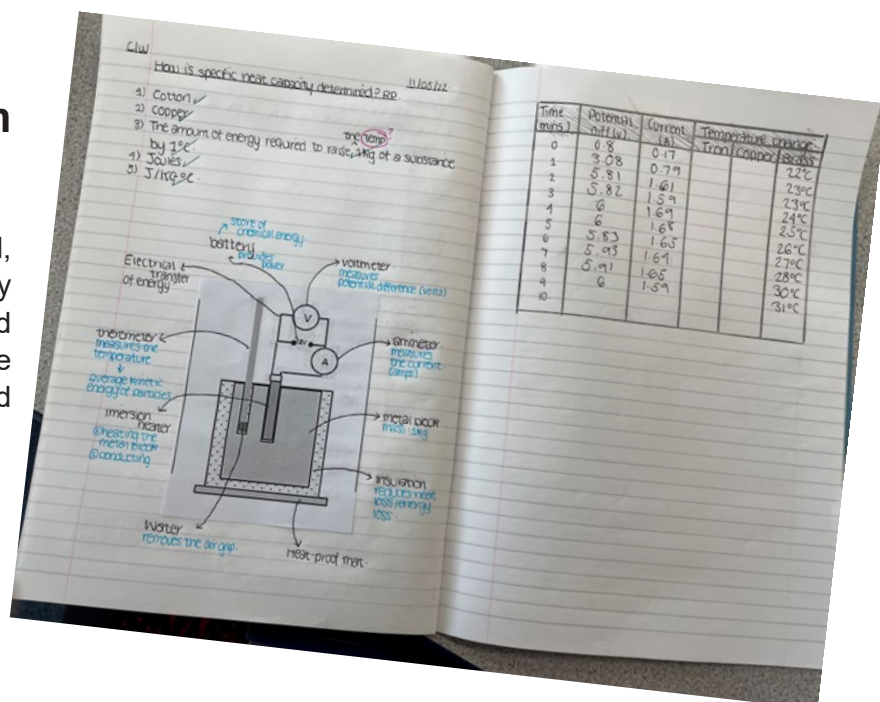 d,
y
d
e
d
C/W
11/05/22
How is specific heat capacity determined? RP
1) Cotton
2) Copper
the temp
3) The amount of energy required to raise 1kg of a substance
by 1°c
4) Joules
5) J/kg°c
store of
chemical energy
battery
provides
power
Electrical
transfer
of energy
voltmeter
measures
potential difference (volts)
V
A
therometer
measures the
temperature
average kinetic
energy of particles
ammeter
measures
the current
(amps)
imersion
heater
① heating the
metal block
② conducting
metal block
mass 1kg
insulation
reduces heat
loss/energy
loss.
Water
removes the air gap.
Heat proof mat.
Time (mins) Potential Diff (v) Current (A) Temperature change
Iron Copper Brass
0 0.8 0.17 22°C
1 3.08 0.79 23°C
2 5.81 1.61 23°C
3 5.82 1.59 24°C
4 6 1.69 25°C
5 6 1.65 26°C
6 5.83 1.65 27°C
7 5.93 1.64 28°C
8 5.91 1.65 30°C
9 6 1.59 31°C
10